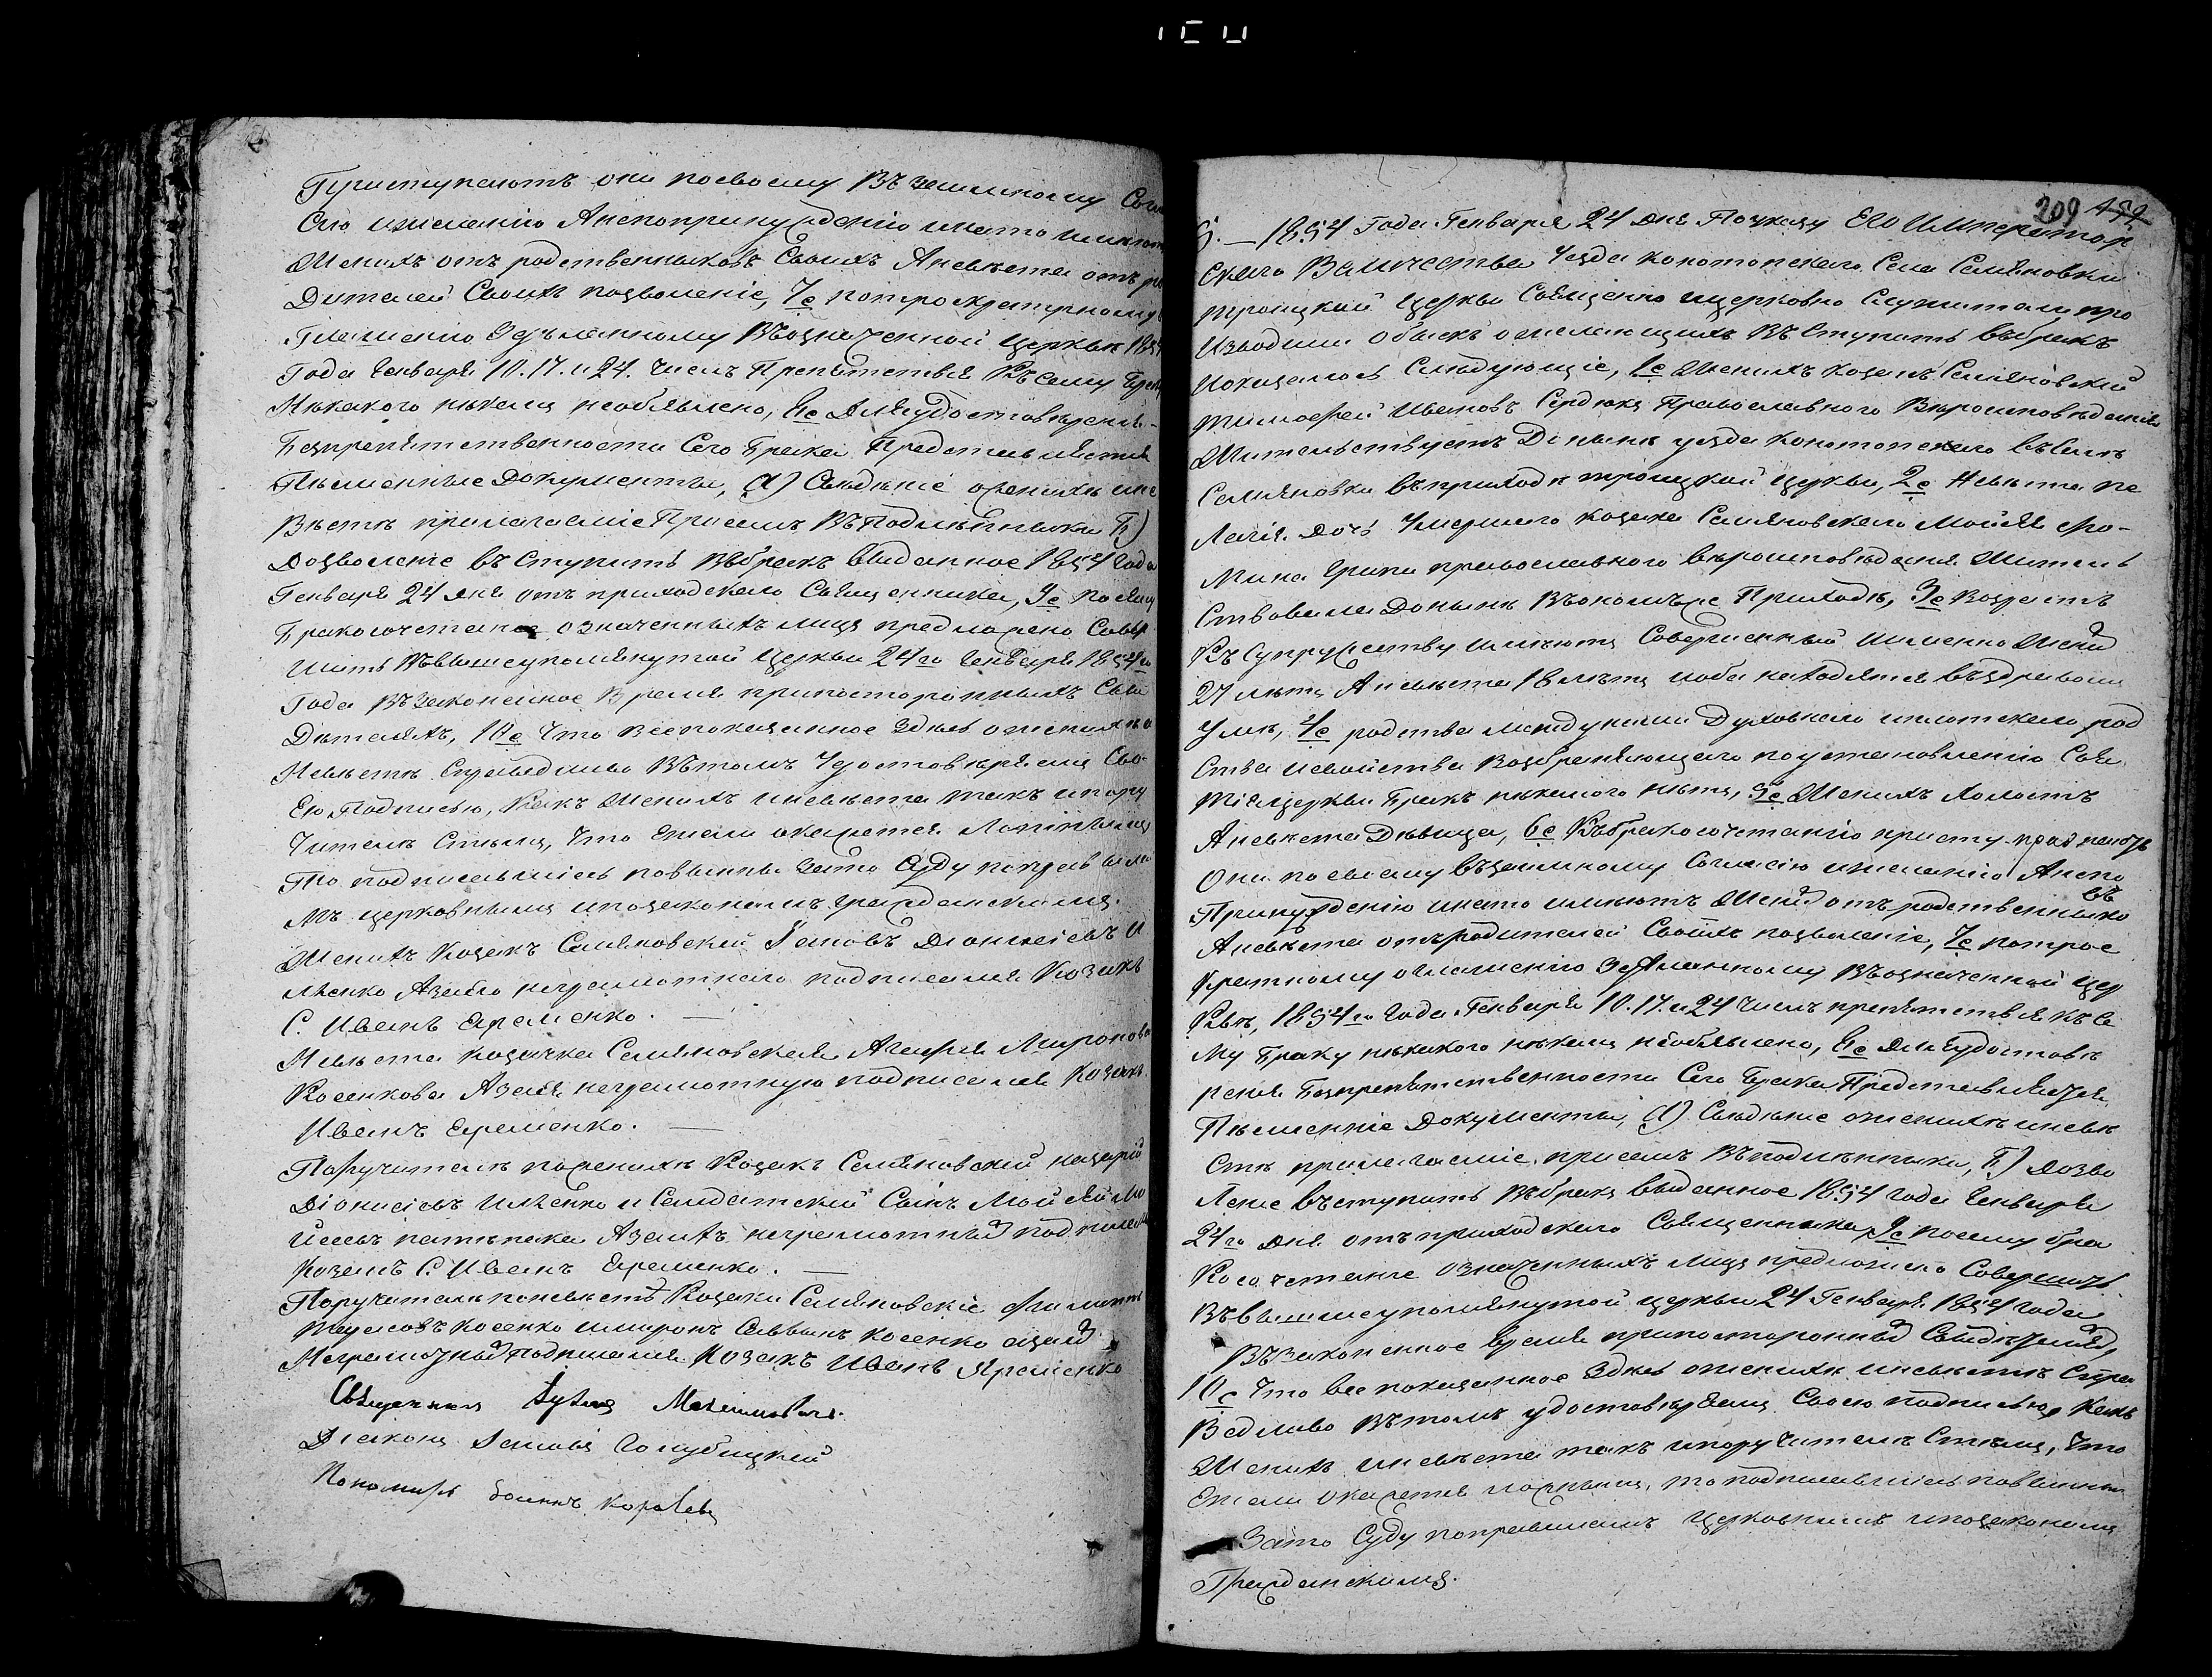 Приступаютъ они посвоему Въ заимному Согла
Сію ижеланію Анепопринужденію инато имеютъ
Женихъ отъ родственниковъ Своихъ Аневѣста отъ ро
Дителей Своихъ позволеніе, 7е потроекратному о
Глашенію Здѣланному Въозначенной Церкви 1854
Года Генваря 10. 17. и 24. Числъ Препятствія Къ Сему Браку
Никакого никемъ необявлено, 8е Дляудостовѣренія
Безпрепятственности Сего Брака Представляются
Писменные Документы, А) Свидѣніе оженихѣ ине
Вѣстѣ прилагаемые Присемъ Въ Подлинникѣ Б)
Дозволеніе въ Ступить Въбракъ выданное 1854 Года
Генваря 24 дня отъ приходскаго Священника, 9е посему
Бракосочетаное означенныхъ лицъ предложено Совер
Шить Въвышеупомянутой Церкви 24го Генваря 1854го
Года Въ Законное Время припостороннихъ Сви
Дѣтеляхъ, 10е Что Всепоказанное Здѣсь оженихѣ и
Невѣстѣ Справедливо Вѣтомъ Удостовѣряемъ Сво
Ею Подписью, Какъ Женихъ иневѣста такъ ипору
Чители Стѣмъ, Что Ежели окажется Ложнымъ
То подписавшіесь повинны Зато Суду поправила
мъ церковнымъ ипозаконамъ гражданскимъ.
Женихъ Козакъ Семяновскій Іаковъ Діонисіевъ И
лѣенко Азаего неграмотнаго подписался Козакъ
С. Иванъ Еременко.
Невѣста козачка Семяновская Агафія Миронова
Косенкова Азаея неграмотную подписался Козакъ
Иванъ Еременко.
Поручители поженихѣ Козакъ Семяновскій назарій
Діонисіевъ Илѣенко и Салдатскій Сынъ Мойсей Мо
Козакъ С. Иванъ Еременко.
Поручители поневѣстѣ Козаки Семяновскіе
Косенко имиронъ Саввинъ косенко
Неграмотный подписался Козакъ Иванъ Яременко
Священникъ Максимовичъ.
Діаконъ Іаковъ Голубицкій
Пономарь
209
5. — 1854 Года Генваря 24 дня Поуказу Его Император
Скаго Величества Уезда конотопскаго Села Семяновки
троицкой Церкви Священно ицерковно Служители про
Изводили обыскъ ожелающихъ Въ Ступить Въбракъ
Иоказалось Слѣдующіе, 1е Женихъ козакъ Семяновскій
тимофей Ивановъ Сердюкъ Православнаго Вѣроисповѣданія
Жительствуетъ Донынѣ уезда Конотопскаго Въ Селѣ
Семяновки Въприходѣ троицкой Церкви, 2е Невѣста пе
Лагія. Дочь Умершаго козака Семяновскаго Мойсея Фо-
Мина православнаго вѣроисповѣданія Житель
Ствовала Донынѣ Въономъже Приходѣ, 3е Возрастъ
Къ Супружеству имѣютъ Совершенный Именно Жених
27 лѣтъ Аневѣста 18 лѣтъ иоба находятся въздравомъ
Умѣ, 4е родства между ними Духовнаго иплотскаго род
Ства исвойства Возбраняющаго поустановленію Свя
тыя церкви Бракъ никакого нѣтъ, 5е Женихъ Холостъ
Аневѣста Дѣвица, 6е Къбракосочетанію присту
Они посвоему взаимному Согласію ижеланію Анепо
Принужденію инато имѣютъ Жених отъ родственнико
въ
Аневѣста отъродителей Своихъ позволеніе, 7е потрое
Кратному оглашенію Здѣланному Въозначенной Цер
Квѣ, 1854го Года Генваря 10. 17. и 24 Числъ препятствія къ Се
Му Браку никакого никемъ необявлено, 8е Дляудостовѣ
ренія Безпрепятственности Сего Брака Представляются
Писменніе Документы, А) Свидѣніе оженихѣ иневѣ
Стѣ прилагаеміе присемъ Въподлинникѣ, Б) Дозво
Леніе въступить Въбракъ выданное 1854 Года Генваря
24го дня отъ приходскаго Священника, 9е посему бра
Косочетаніе означенныхъ лицъ предложено Совершить
Въвышеупомянутой церкви 24 Генваря 1854 Года
Въ законное время припостороннихъ Свидѣтеляхъ
10е Что все показанное Здѣсь оженихѣ иневѣстѣ Спра
Ведливо Вѣтомъ удостовѣряемъ Своею подписью Какъ
Женихъ иневѣста такъ ипоручители Стѣмъ, Что
Ежели окажется ложнымъ, то подписавшіесь повинны
Зато Суду поправиламъ Церковнымъ ипозаконамъ
Гражданскимъ.